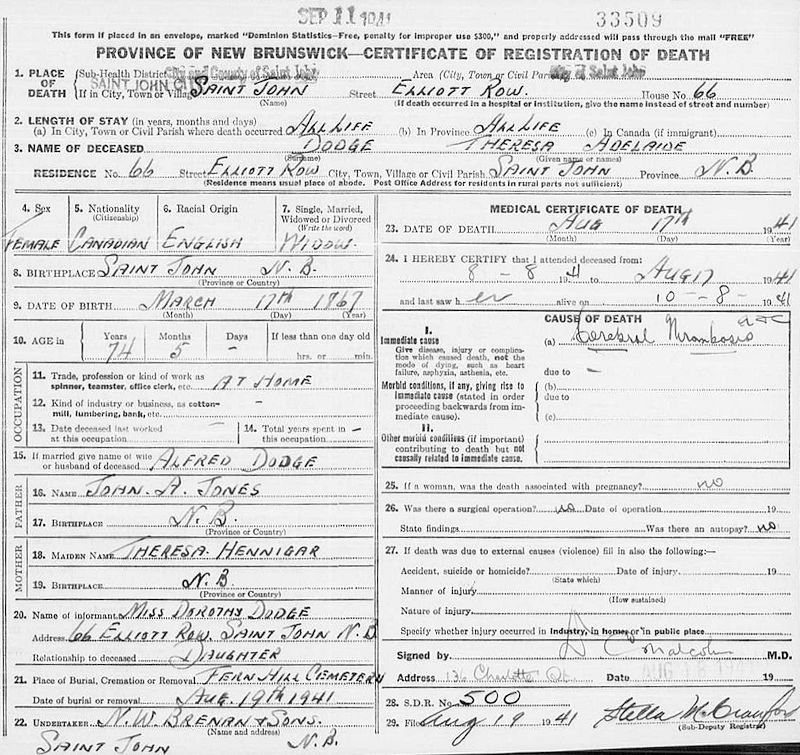 SEP 11 1941 33509
This form if placed in an envelope, marked "Dominion Statistics—Free, penalty for improper use $300," and properly addressed will pass through the mail "FREE"
PROVINCE OF NEW BRUNSWICK—CERTIFICATE OF REGISTRATION OF DEATH
1. PLACE OF DEATH (Sub-Health District City and County of Saint John Area (City, Town or Civil Parish) City of Saint John
SAINT JOHN
If in City, Town or Village SAINT JOHN Street ELLIOTT ROW. House No. 66
(Name) (If death occurred in a hospital or institution, give the name instead of street and number)
2. LENGTH OF STAY (in years, months and days)
(a) In City, Town or Civil Parish where death occurred ALL LIFE (b) In Province ALL LIFE (c) In Canada (if immigrant)
3. NAME OF DECEASED DODGE THERESA ADELAIDE
(Surname) (Given name or names)
RESIDENCE No. 66 Street ELLIOTT ROW City, Town, Village or Civil Parish SAINT JOHN Province N.B.
(Residence means usual place of abode. Post Office Address for residents in rural parts not sufficient)
4. Sex 5. Nationality (Citizenship) 6. Racial Origin 7. Single, Married, Widowed or Divorced (Write the word)
FEMALE CANADIAN ENGLISH WIDOW.
8. BIRTHPLACE SAINT JOHN N.B.
(Province or Country)
9. DATE OF BIRTH MARCH 17TH 1867
(Month) (Day) (Year)
10. AGE in Years Months Days If less than one day old
74 5 - hrs. or min.
OCCUPATION
11. Trade, profession or kind of work as spinner, teamster, office clerk, etc. AT HOME
12. Kind of industry or business, as cotton-mill, lumbering, bank, etc. -
13. Date deceased last worked at this occupation - 14. Total years spent in this occupation -
15. If married give name of wife or husband of deceased ALFRED DODGE
FATHER
16. NAME JOHN. A. JONES
17. BIRTHPLACE N.B.
(Province or Country)
MOTHER
18. MAIDEN NAME THERESA HENNIGAR
19. BIRTHPLACE N.B.
(Province or Country)
20. Name of informant MISS DOROTHY DODGE
Address 66 ELLIOTT ROW. SAINT JOHN N.B
Relationship to deceased DAUGHTER
21. Place of Burial, Cremation or Removal FERN HILL CEMETERY
Date of burial or removal AUG. 19TH 1941
22. UNDERTAKER N.W. BRENAN & SONS.
(Name and address)
SAINT JOHN N.B.
MEDICAL CERTIFICATE OF DEATH
23. DATE OF DEATH AUG 17TH 1941
(Month) (Day) (Year)
24. I HEREBY CERTIFY that I attended deceased from:
8 - 8 - 41 to AUG 17 1941
and last saw her alive on 10 - 8 - 1941
CAUSE OF DEATH
I.
Immediate cause
Give disease, injury or complication which caused death, not the mode of dying, such as heart failure, asphyxia, asthenia, etc.
(a) Cerebral Thrombosis
due to -
Morbid conditions, if any, giving rise to immediate cause (stated in order proceeding backwards from immediate cause).
(b)
due to
(c)
II.
Other morbid conditions (if important) contributing to death but not causally related to immediate cause.
25. If a woman, was the death associated with pregnancy? no
26. Was there a surgical operation? no Date of operation 19
State findings Was there an autopsy? no
27. If death was due to external causes (violence) fill in also the following:—
Accident, suicide or homicide? Date of injury 19
(State which)
Manner of injury
(How sustained)
Nature of injury
Specify whether injury occurred in industry, in home, or in public place
Signed by D C Malcolm M.D.
Address 136 Charlotte St. Date AUG 19
28. S.D.R. No. 500
29. Filed Aug 19 1941 Stella McCrawford
(Sub-Deputy Registrar)